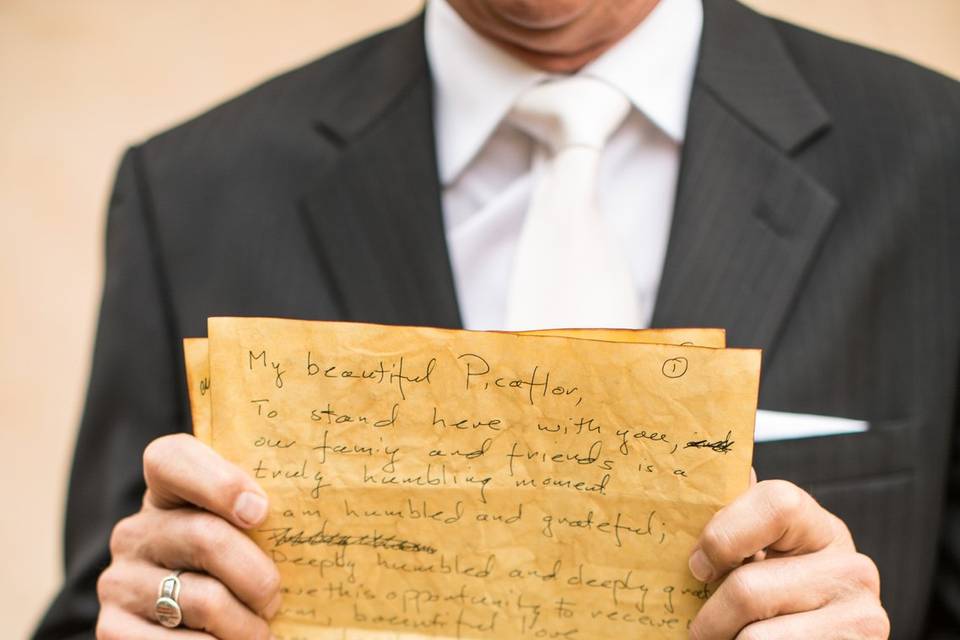 My beautiful Picaflor, ①
To stand here with you,
our family and friends is a
truly humbling moment.
am humbled and grateful;
Deeply humbled and deeply
this opportunity to receive
bountiful love